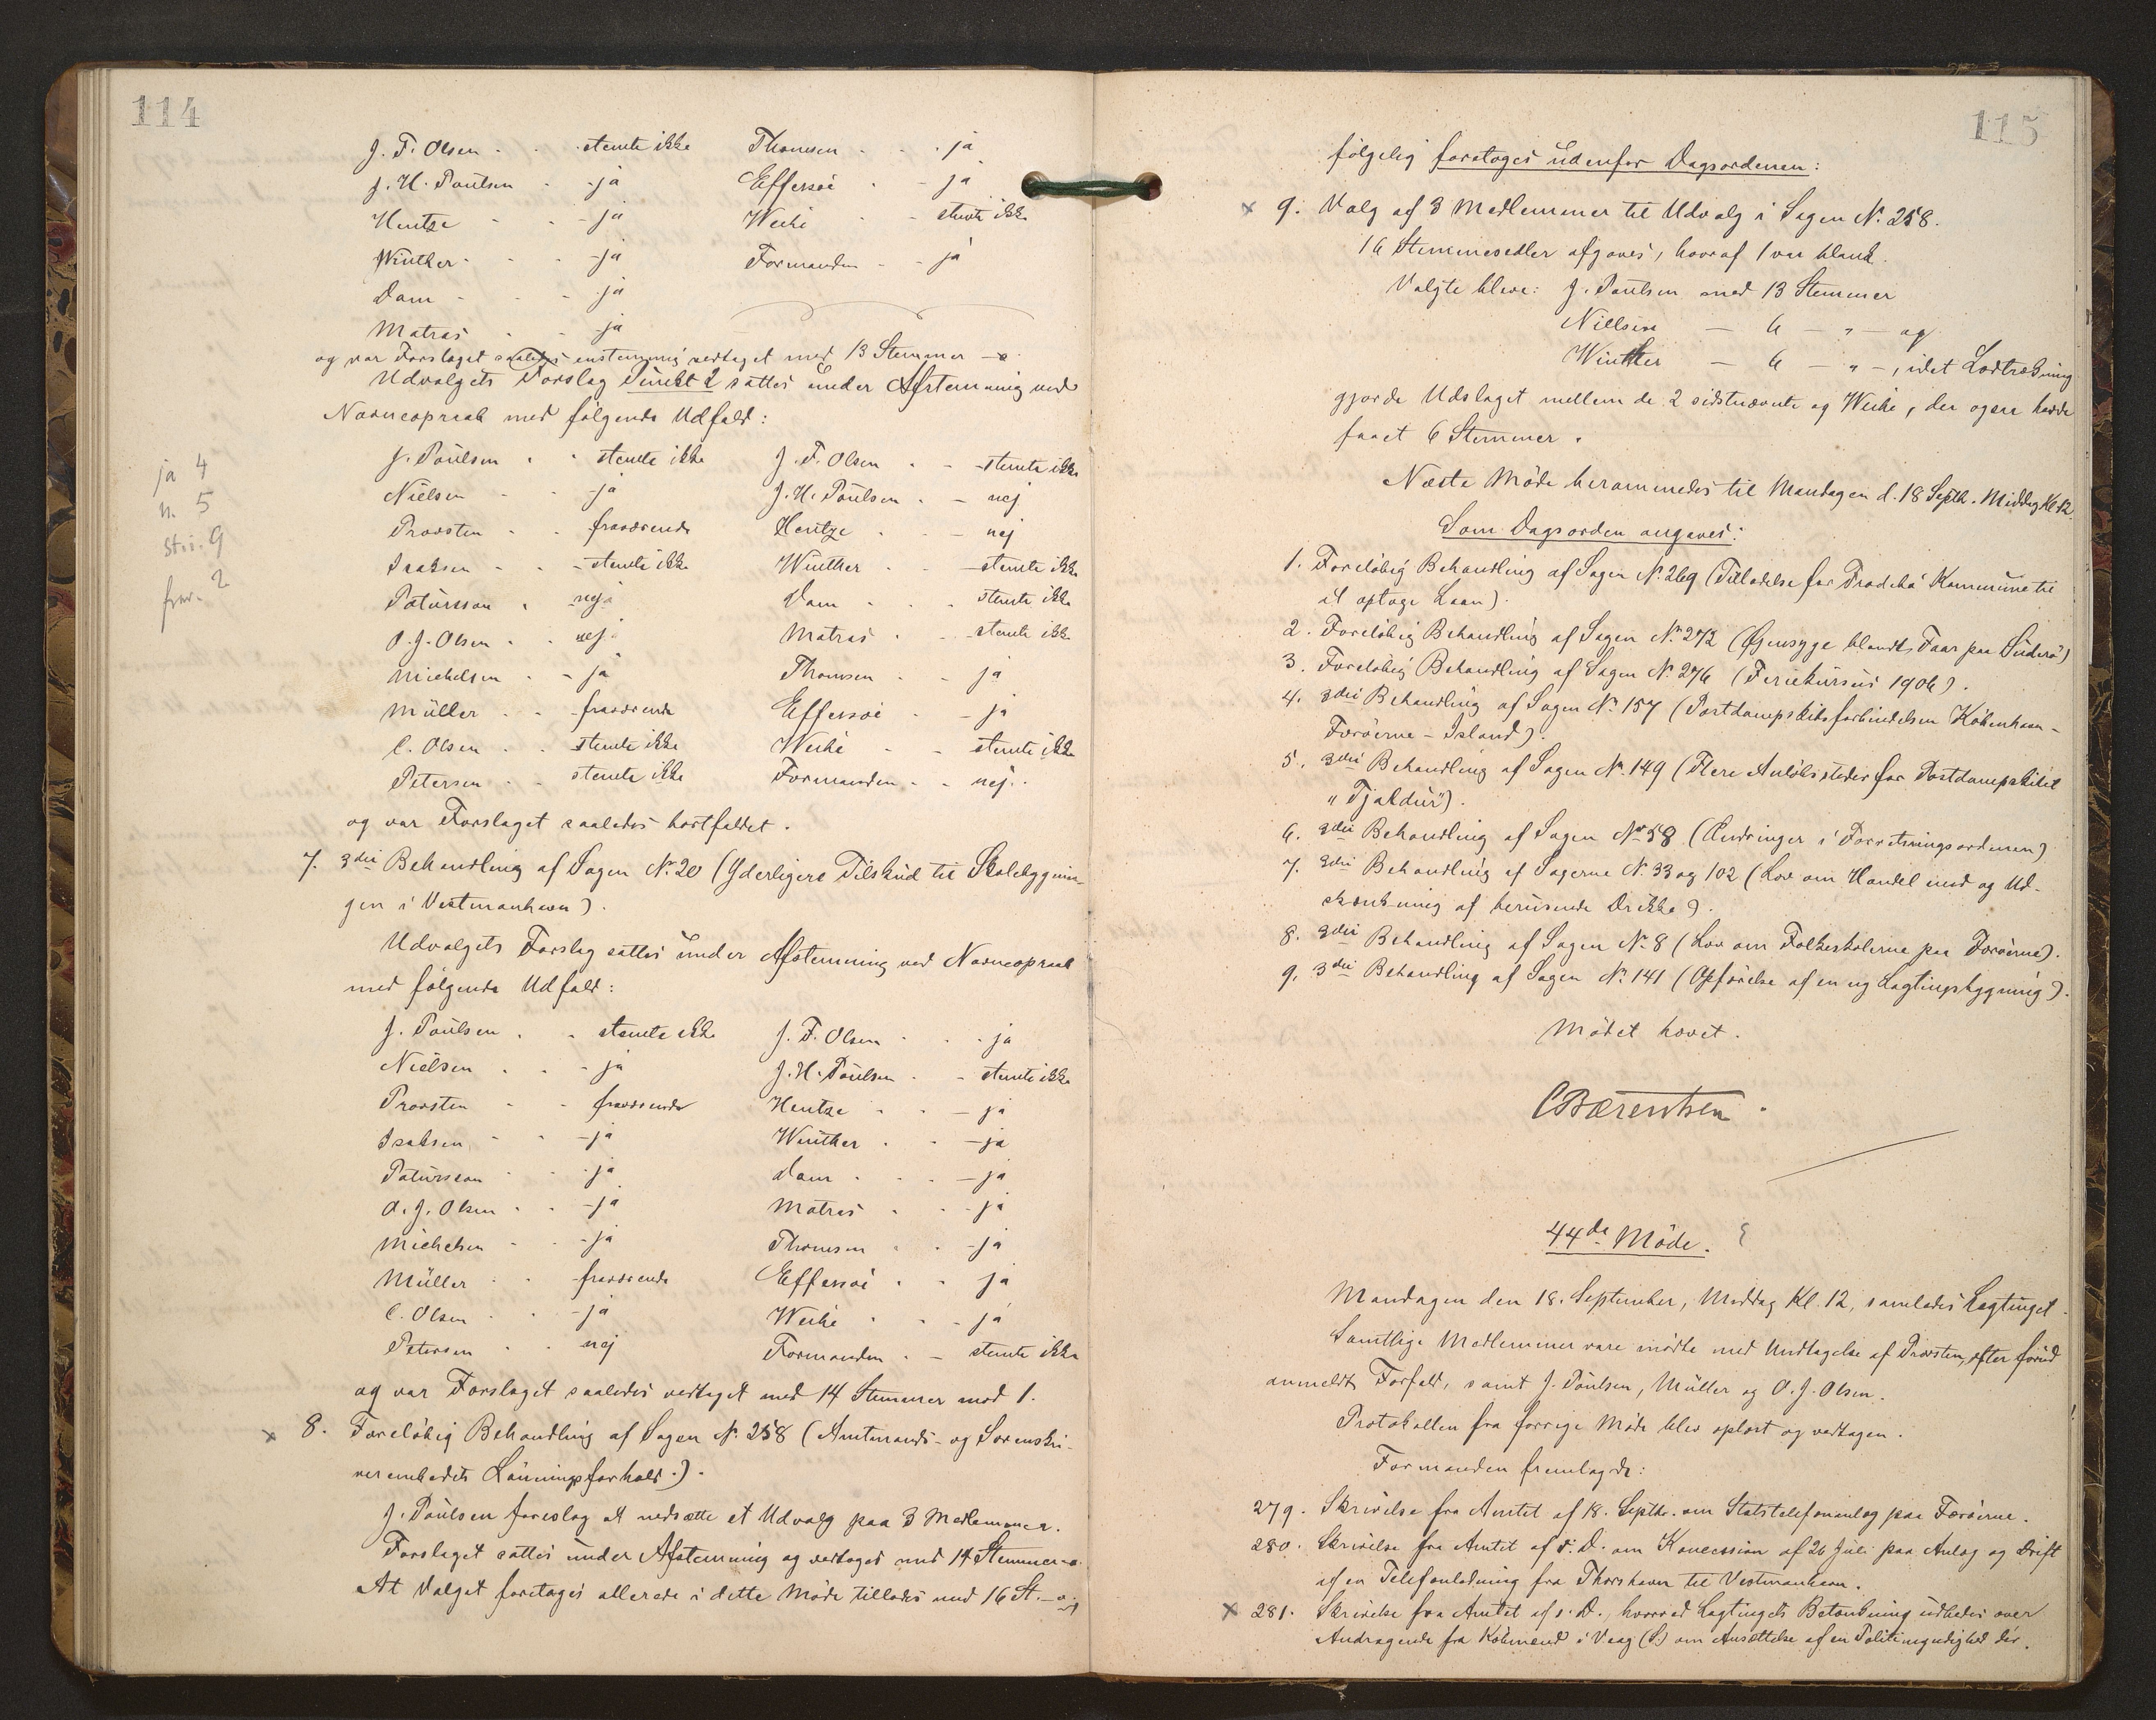 114
J. F. Olsen - - stemte ikke Thomsen - - ja
J. H. Poulsen - - ja Effersøe - - ja
Hentze - - ja Weihe - - stemte ikke
Winther - - ja Formanden - - ja
Dam - - ja
Matras - - ja
og var Forslaget saaledes enstemmig vedtaget med 13 Stemmer
Udvalgets Forslag Punkt 2 sattes under Afstemning ved
Navneopraab med følgende Udfald:
ja 4
n. 5
sti. 9
frav. 2
J. Poulsen - - stemte ikke J. F. Olsen - - stemte ikke
Nielsen - - ja J. H. Poulsen - - nej
Provsten - - fraværende Hentze - - nej
Isaksen - - stemte ikke Winther - - stemte ikke
Patursson - nej Dam - - stemte ikke
O. J. Olsen - - nej Matras - - stemte ikke
Michelsen - - ja Thomsen - - ja
Müller - - fraværende Effersøe - - ja
C. Olsen - - stemte ikke Weihe - - stemte ikke
Petersen - - stemte ikke Formanden - - nej.
og var Forslaget saaledes bortfaldet.
7. 3die Behandling af Sagen No. 20 (Yderligere Tilskud til Skolebygnin-
gen i Vestmanhavn).
Udvalgets Forslag sattes under Afstemning ved Navneopraab
med følgende Udfald:
J. Poulsen - - stemte ikke J. F. Olsen - - ja
Nielsen - - ja J. H. Poulsen - - stemte ikke
Provsten - - fraværende Hentze - - ja
Isaksen - - ja Winther - - ja
Patursson - - ja Dam - - ja
O. J. Olsen - - ja Matras - - ja
Michelsen - - ja Thomsen - - ja
Müller - - fraværende Effersøe - - ja
C. Olsen - - ja Weihe - - ja
Petersen - - nej Formanden - - stemte ikke
og var Forslaget saaledes vedtaget med 14 Stemmer mod 1.
x 8. Foreløbig Behandling af Sagen No. 258 (Amtmands- og Sorenskri-
verembedets Lønningsforhold.).
J. Poulsen foreslog at nedsætte et Udvalg paa 3 Medlemmer.
Forslaget sattes under Afstemning og vedtoges med 14 Stemmer
At Valget foretages allerede i dette Møde tillodes med 16 St.
115
følgelig foretoges udenfor Dagsordenen:
x 9. Valg af 3 Medlemmer til Udvalg i Sagen No. 258.
16 Stemmesedler afgaves, hvoraf 1 var blank.
Valgte bleve: J. Poulsen med 13 Stemmer
Nielsen — 6 — " — og
Winther — 6 — " —, idet Lodtrækning
gjorde Udslaget mellem de 2 sidstnævnte og Weihe, der ogsaa havde
faaet 6 Stemmer.
Næste Møde berammedes til Mandagen d. 18 Septb. Middag Kl. 12.
Som Dagsorden angaves:
1. Foreløbig Behandling af Sagen No. 269 (Tilladelse for Frodebø Kommune til
at optage Laan).
2. Foreløbig Behandling af Sagen No. 272 (Øjensyge blandt Faar paa Suderø)
3. Foreløbig Behandling af Sagen No. 276 (Feriekursus 1906).
4. 3die Behandling af Sagen No. 157 (Postdampskibsforbindelsen København -
Færøerne - Island).
5. 3die Behandling af Sagen No. 149 (Flere Anløbssteder for Postdampskibet
"Tjaldur").
6. 3die Behandling af Sagen No. 58 (Ændringer i Forretningsordenen)
7. 3die Behandling af Sagerne No. 33 og 102 (Lov om Handel med og Ud-
skænkning af berusende Drikke).
8. 3die Behandling af Sagen No. 8 (Lov om Folkeskolerne paa Færøerne).
9. 3die Behandling af Sagen No. 141 (Opførelse af en ny Lagtingsbygning).
Mødet hævet.
C Bærentsen.
44de Møde.
Mandagen den 18. September, Middag Kl. 12, samledes Lagtinget.
Samtlige Medlemmer vare mødte med Undtagelse af Provsten, efter forud
anmeldt Forfald, samt J. Poulsen, Müller og O. J. Olsen.
Protokollen fra forrige Møde blev oplæst og vedtagen.
Formanden fremlagde:
279. Skrivelse fra Amtet af 18. Septb. om Statstelefonanlæg paa Færøerne.
280. Skrivelse fra Amtet af s. D. om Koncession af 26 Juli paa Anlæg og Drift
af en Telefonledning fra Thorshavn til Vestmanhavn.
x 281. Skrivelse fra Amtet af s. D., hvorved Lagtingets Betænkning udbedes over
Andragende fra Købmænd i Vaag (S.) om Ansættelse af en Politimyndighed dér.